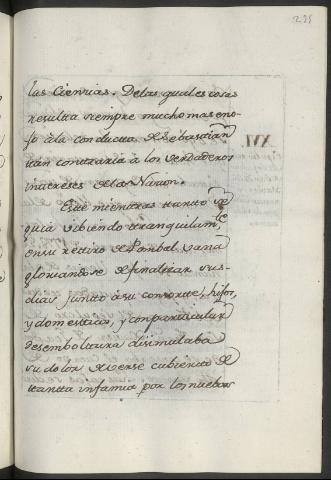 235
las Ciencias. Delas quales cosas
resulta siempre mucho mas eno-
so àla conducta de Sebastian
tan contraria à los verdaderos
intereses dela Nacion.
Este mientras tanto se
guia vibiendo tranquilam.te
en su retiro de Pombal vana
gloriandose de finalizar sus
dias junto à su consorte, hijos,
y domesticos, y con particular
desemboltura disimulaba
su dolor de verse cubierto de
tanta infamia por los nuebos